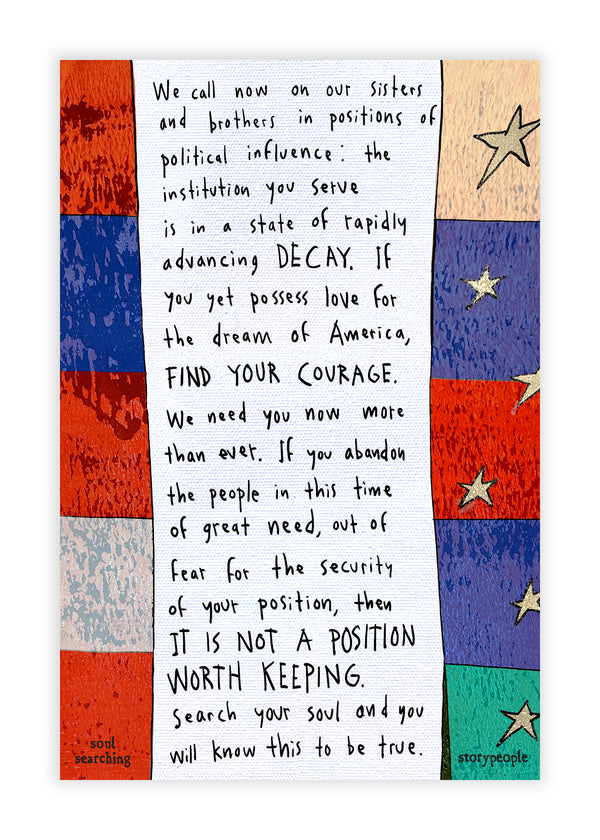 We call now on our sisters
and brothers in positions of
political influence: the
institution you serve
is in a state of rapidly
advancing DECAY. If
you yet possess love for
the dream of America,
FIND YOUR COURAGE.
We need you now more
than ever. If you abandon
the people in this time
of great need, out of
fear for the security
of your position, then
IT IS NOT A POSITION
WORTH KEEPING.
Search your soul and you
will know this to be true.
soul
searching
storypeople